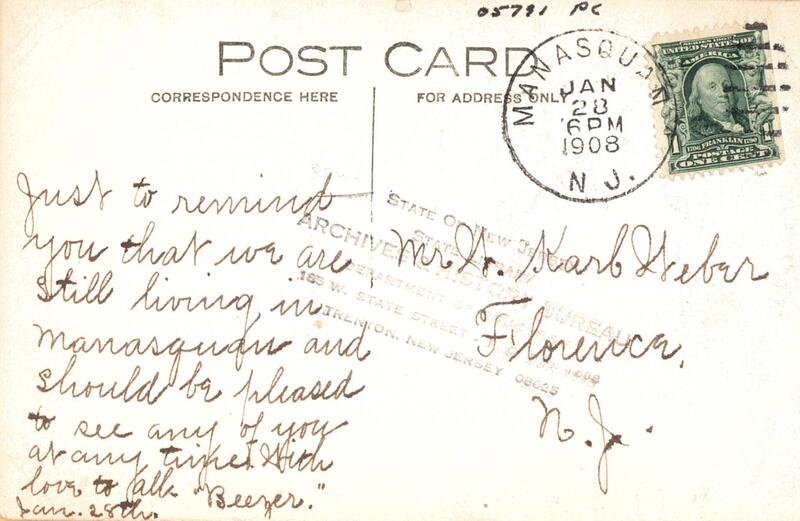 05791 PC
POST CARD
CORRESPONDENCE HERE
FOR ADDRESS ONLY
MANASQUAN
JAN
28
6PM
1908
N. J.
SERIES 1902
UNITED STATES OF
AMERICA
1706 FRANKLIN 1790
POSTAGE
1 ONE CENT 1
Just to remind
you that we are
still living in
Manasquan and
should be pleased
to see any of you
at any time. With
love to all. "Beezer."
Jan. 28th.
Mr. W. Karb Weber
Florence,
N. J.
STATE OF NEW JERSEY
STATE LIBRARY
ARCHIVES & HISTORY BUREAU
DEPARTMENT OF
185 W. STATE STREET
TRENTON, NEW JERSEY 08625